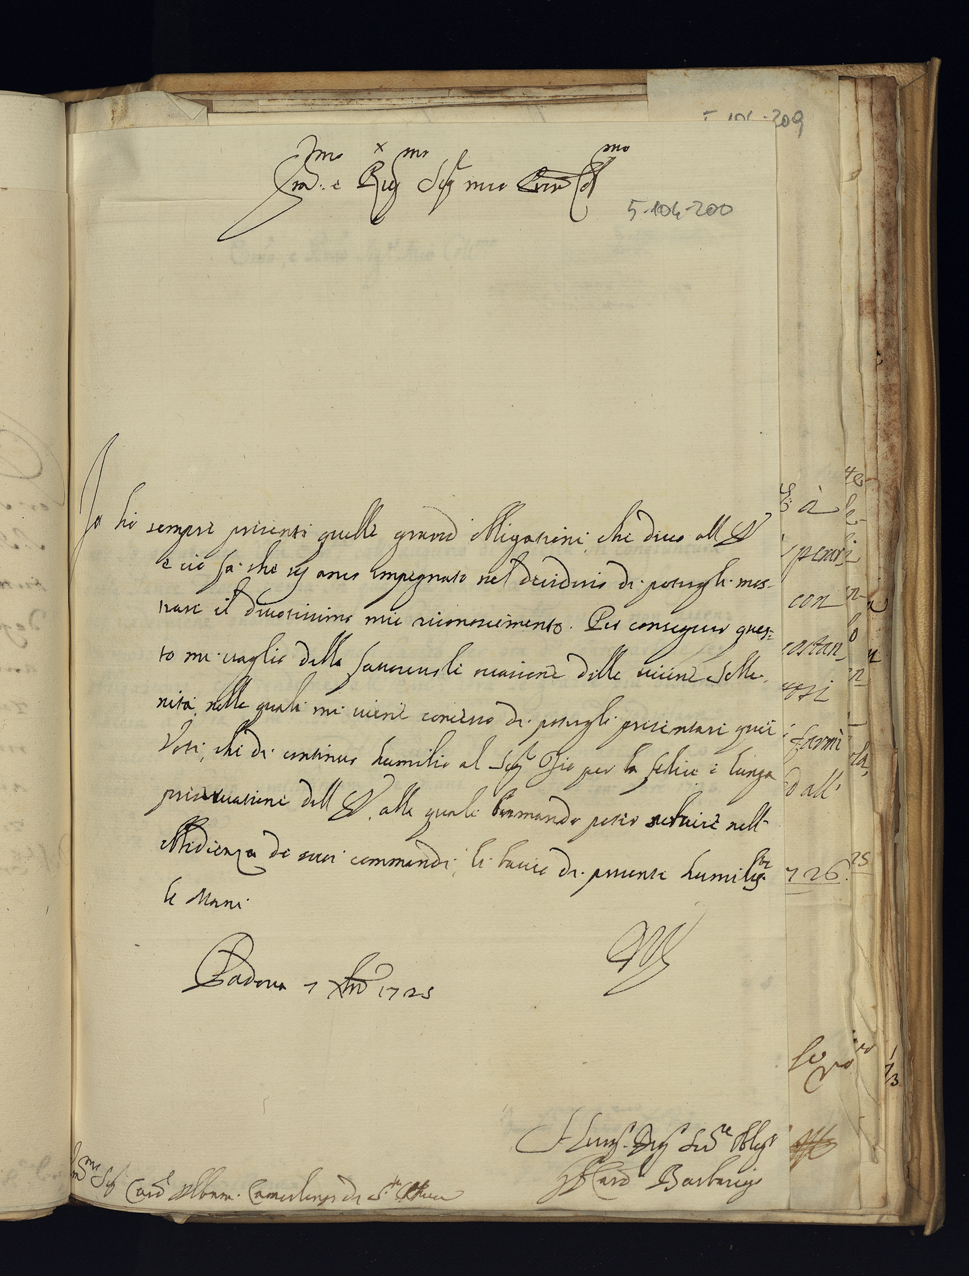 5-104-209
Em.mo e Rev.mo Sig.r mio Col.mo
5-104-200
Io hò sempre presenti quelle grandi obligationi, che devo all' E.V.
e ciò fà che sij anco impegnato nel desiderio di potergli mos-
trare il divotissimo mio riconoscimento. Per conseguir ques-
to mi vaglio della favorevole occasione delle vicine Solle-
nità, nelle quali mi viene concesso di potergli presentare quei
Voti, che di continuo humilio al Sig.r Dio per la felice e lunga
preservatione dell' E.V. alla quale bramando poter servire nell'
obbidienza de suoi commandi, li bacio di presente humiliss.te
le Mani
E.V.
Padova 7 Xbre 1725
Humil.o Dev.o Ser.re Oblig.o
Card. Barbarigo
Em.mo Sig.r Card. Album. Camerlengo di S.ta Chiesa
à
con
costan-
farmi
ed all'
726.
25